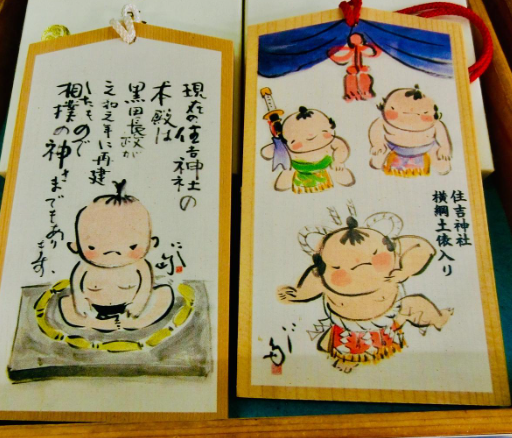 現在の住吉神社の
本殿は
黒田長政が
元和元年に再建
したもので
相撲の神さまでもあり
ます。
住吉神社
横綱土俵入り